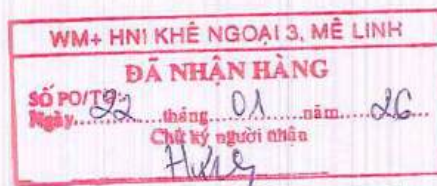 WM+ HNI KHÊ NGOẠI 3, MÊ LINH
ĐÃ NHẬN HÀNG
SỐ PO/TO:
Ngày....22....tháng....01....năm....26....
Chữ ký người nhận